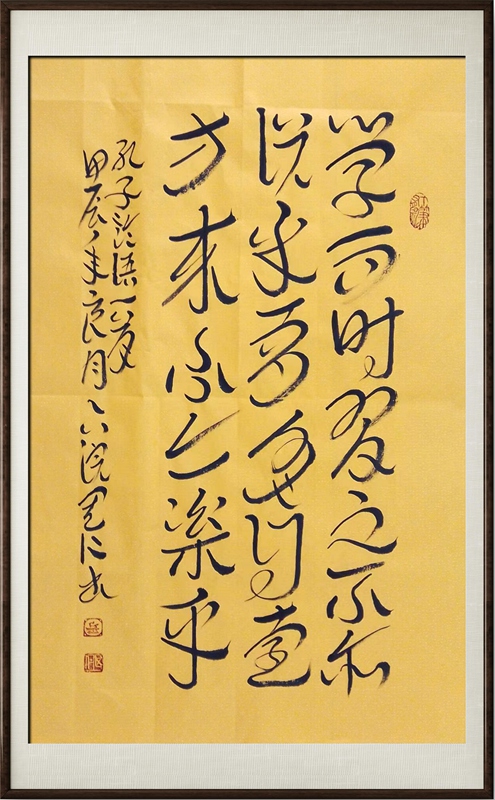 学而时習之不亦
说乎有朋自远
方来不亦樂乎
孔子论语一段
甲辰年良月